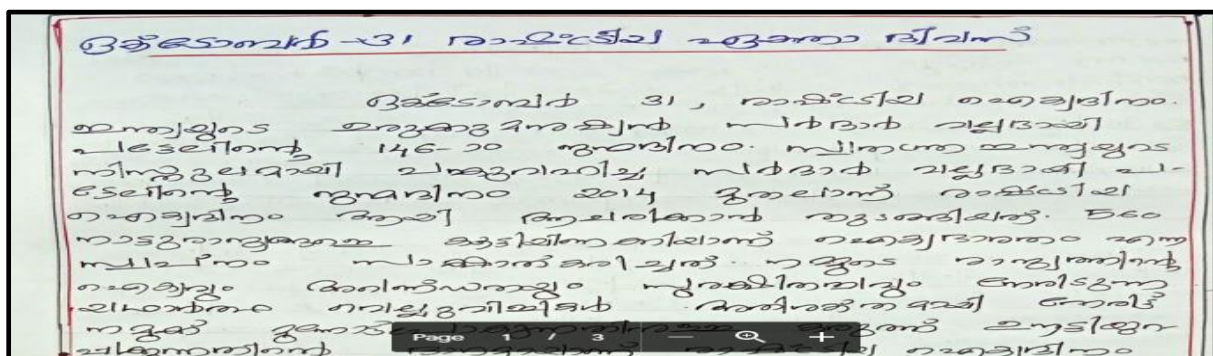 ഒക്ടോബർ -31 രാഷ്ട്രീയ ഏകതാ ദിവസ്
ഒക്ടോബർ 31, രാഷ്ട്രീയ ഐക്യദിനം.
ഇന്ത്യയുടെ ഉരുക്കുമനുഷ്യൻ സർദാർ വല്ലഭായി
പട്ടേലിന്റെ 146-ാo ജന്മദിനം. സ്വതന്ത്ര ഇന്ത്യയുടെ
പങ്കുവഹിച്ച സർദാർ വല്ലഭായി പ-
ട്ടേലിന്റെ ജന്മദിനം 2014 മുതലാണ് രാഷ്ട്രീയ
ഐക്യദിനം ആയി ആചരിക്കാൻ തുടങ്ങിയത്. 560
നാട്ടുരാജ്യങ്ങളെ ഐക്യഭാരതം എന്ന
സ്വപ്നം സാക്ഷാത്കരിച്ചത്. നമ്മുടെ രാജ്യത്തിന്റെ
ഐക്യവും അഖണ്ഡതയും സുരക്ഷിതത്വവും നേരിടുന്ന
യഥാർത്ഥ വെല്ലുവിളികൾ നേരിട്ട്
നമുക്ക് കരുത്ത് ഊട്ടിയുറ
രാഷ്ട്രീയ ഐക്യദിനം
Page 1 / 3 — +